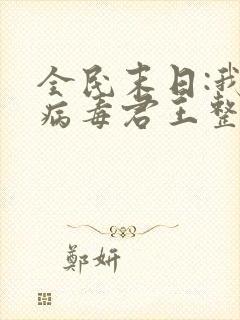 全民末日:我
病毒君王整
鄭妍